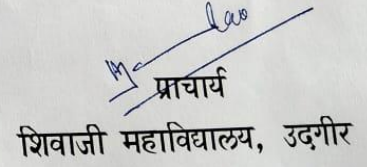 प्राचार्य
शिवाजी महाविद्यालय, उदगीर